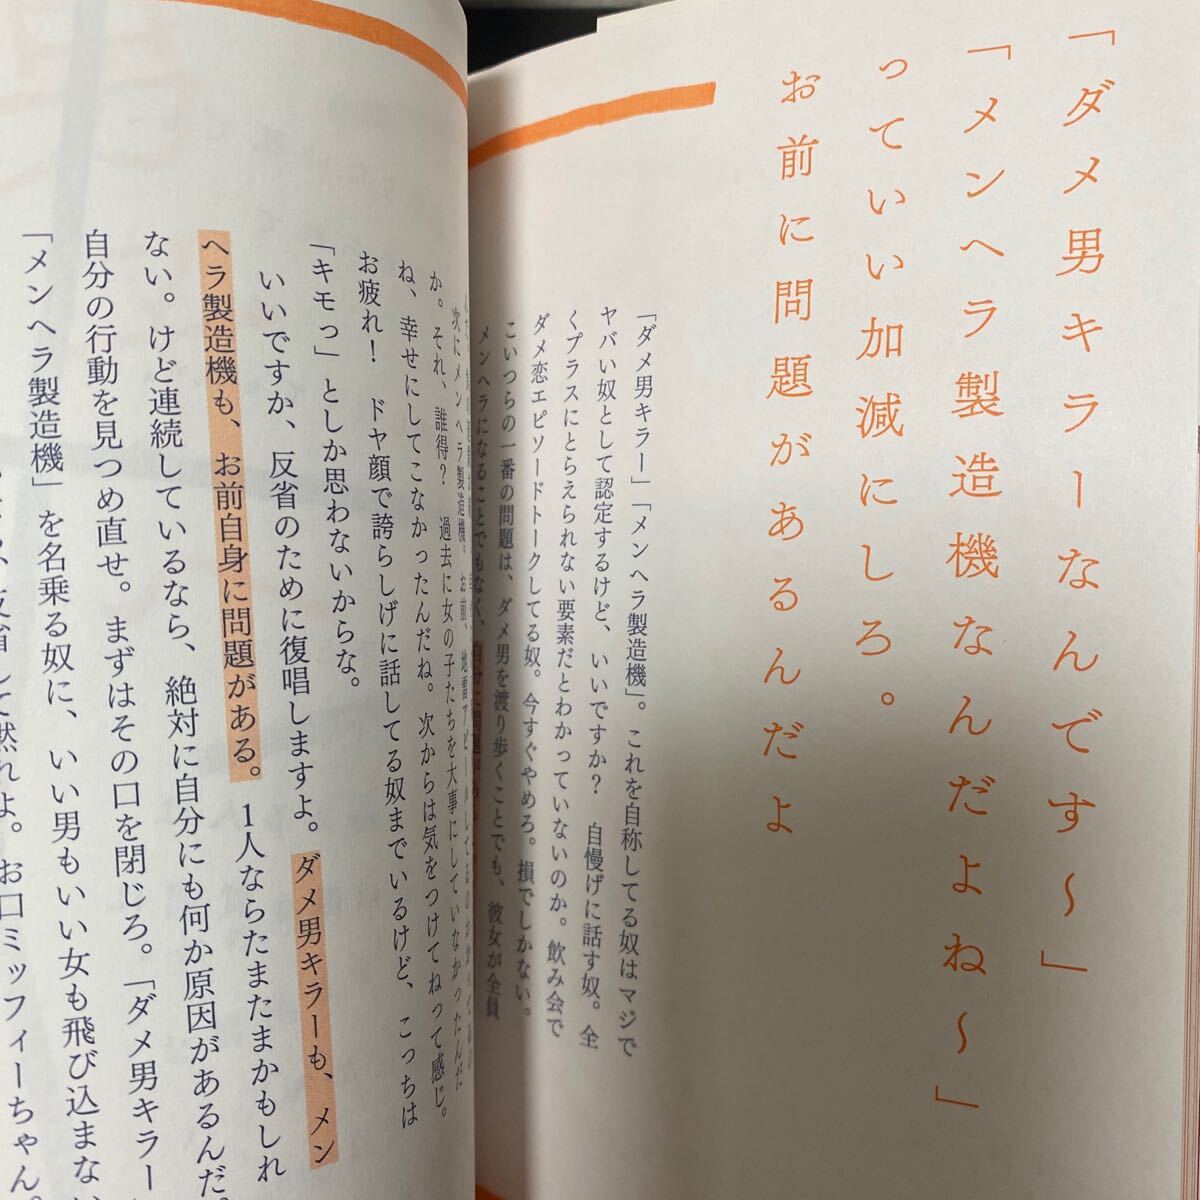 「ダメ男キラーなんです〜」
「メンヘラ製造機なんだよね〜」
っていい加減にしろ。
お前に問題があるんだよ
「ダメ男キラー」「メンヘラ製造機」。これを自称してる奴はマジで
ヤバい奴として認定するけど、いいですか？　自慢げに話す奴。全
くプラスにとらえられない要素だとわかっていないのか。飲み会で
ダメ恋エピソードトークしてる奴。今すぐやめろ。損でしかない。
こいつらの一番の問題は、ダメ男を渡り歩くことでも、彼女が全員
メンヘラになることでもなく、自分に問題
次にメンヘラ製造機。お前、地雷アピールしてるのわかってるの
か。それ、誰得？　過去に女の子たちを大事にしていなかったんだ
ね、幸せにしてこなかったんだね。次からは気をつけてねって感じ。
お疲れ！　ドヤ顔で誇らしげに話してる奴までいるけど、こっちは
「キモっ」としか思わないからな。
いいですか、反省のために復唱しますよ。ダメ男キラーも、メン
ヘラ製造機も、お前自身に問題がある。1人ならたまたまかもしれ
ない。けど連続しているなら、絶対に自分にも何か原因があるんだ。
自分の行動を見つめ直せ。まずはその口を閉じろ。「ダメ男キラー」
「メンヘラ製造機」を名乗る奴に、いい男もいい女も飛び込まない
反省して黙れよ。お口ミッフィーちゃん。